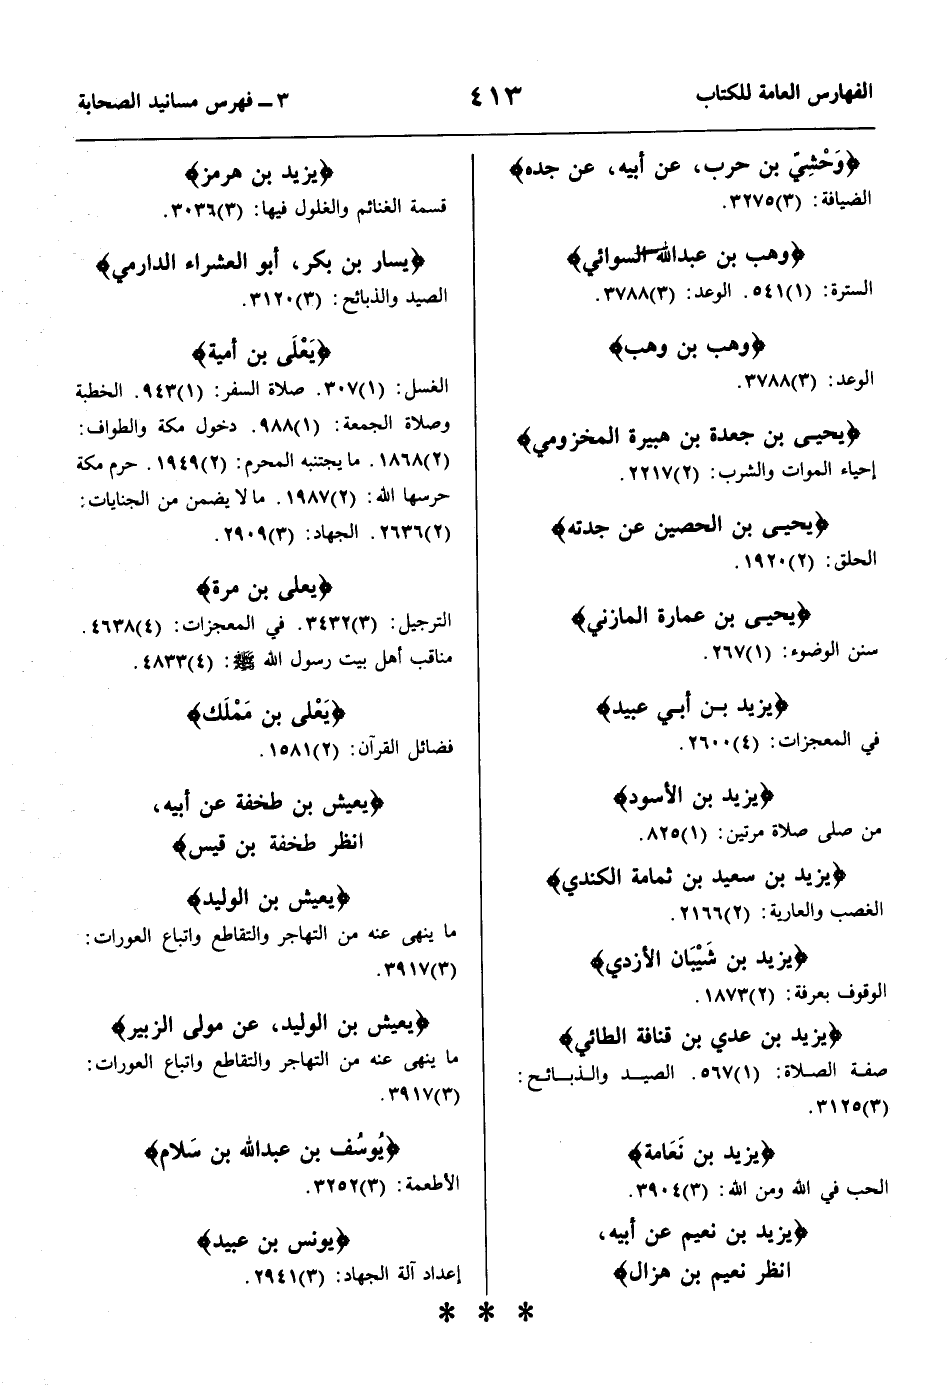 الفهارس العامة للكتاب
٤١٣
٣ – فهرس مسانيد الصحابة
﴿وَحْشِيّ بن حرب، عن أبيه، عن جده﴾
الضيافة: (٣)٣٢٧٥.
﴿وهب بن عبدالله السوائي﴾
السترة: (١)٥٤١. الوعد: (٣)٣٧٨٨.
﴿وهب بن وهب﴾
الوعد: (٣)٣٧٨٨.
﴿يحيى بن جعدة بن هبيرة المخزومي﴾
إحياء الموات والشرب: (٢)٢٢١٧.
﴿يحيى بن الحصين عن جدته﴾
الحلق: (٢)١٩٢٠.
﴿يحيى بن عمارة المازني﴾
سنن الوضوء: (١)٢٦٧.
﴿يزيد بن أبي عبيد﴾
في المعجزات: (٤)٢٦٠٠.
﴿يزيد بن الأسود﴾
من صلى صلاة مرتين: (١)٨٢٥.
﴿يزيد بن سعيد بن ثمامة الكندي﴾
الغصب والعارية: (٢)٢١٦٦.
﴿يزيد بن شَيْبَان الأزدي﴾
الوقوف بعرفة: (٢)١٨٧٣.
﴿يزيد بن عدي بن قنافة الطائي﴾
صفة الصلاة: (١)٥٦٧. الصيد والذبائح:
(٣)٣١٢٥.
﴿يزيد بن نَعَامة﴾
الحب في الله ومن الله: (٣)٣٩٠٤.
﴿يزيد بن نعيم عن أبيه،
انظر نعيم بن هزال﴾
﴿يزيد بن هرمز﴾
قسمة الغنائم والغلول فيها: (٣)٣٠٣٦.
﴿يسار بن بكر، أبو العشراء الدارمي﴾
الصيد والذبائح: (٣)٣١٢٠.
﴿يَعْلَى بن أمية﴾
الغسل: (١)٣٠٧. صلاة السفر: (١)٩٤٣. الخطبة
وصلاة الجمعة: (١)٩٨٨. دخول مكة والطواف:
(٢)١٨٦٨. ما يجتنبه المحرم: (٢)١٩٤٩. حرم مكة
حرسها الله: (٢)١٩٨٧. ما لا يضمن من الجنايات:
(٢)٢٦٣٦. الجهاد: (٣)٢٩٠٩.
﴿يعلى بن مرة﴾
الترجيل: (٣)٣٤٣٢. في المعجزات: (٤)٤٦٣٨.
مناقب أهل بيت رسول الله ﷺ: (٤)٤٨٣٣.
﴿يَعْلى بن مَمْلَك﴾
فضائل القرآن: (٢)١٥٨١.
﴿يعيش بن طخفة عن أبيه،
انظر طخفة بن قيس﴾
﴿يعيش بن الوليد﴾
ما ينهى عنه من التهاجر والتقاطع واتباع العورات:
(٣)٣٩١٧.
﴿يعيش بن الوليد، عن مولى الزبير﴾
ما ينهى عنه من التهاجر والتقاطع واتباع العورات:
(٣)٣٩١٧.
﴿يُوسُف بن عبدالله بن سَلام﴾
الأطعمة: (٣)٣٢٥٢.
﴿يونس بن عبيد﴾
إعداد آلة الجهاد: (٣)٢٩٤١.
* * *